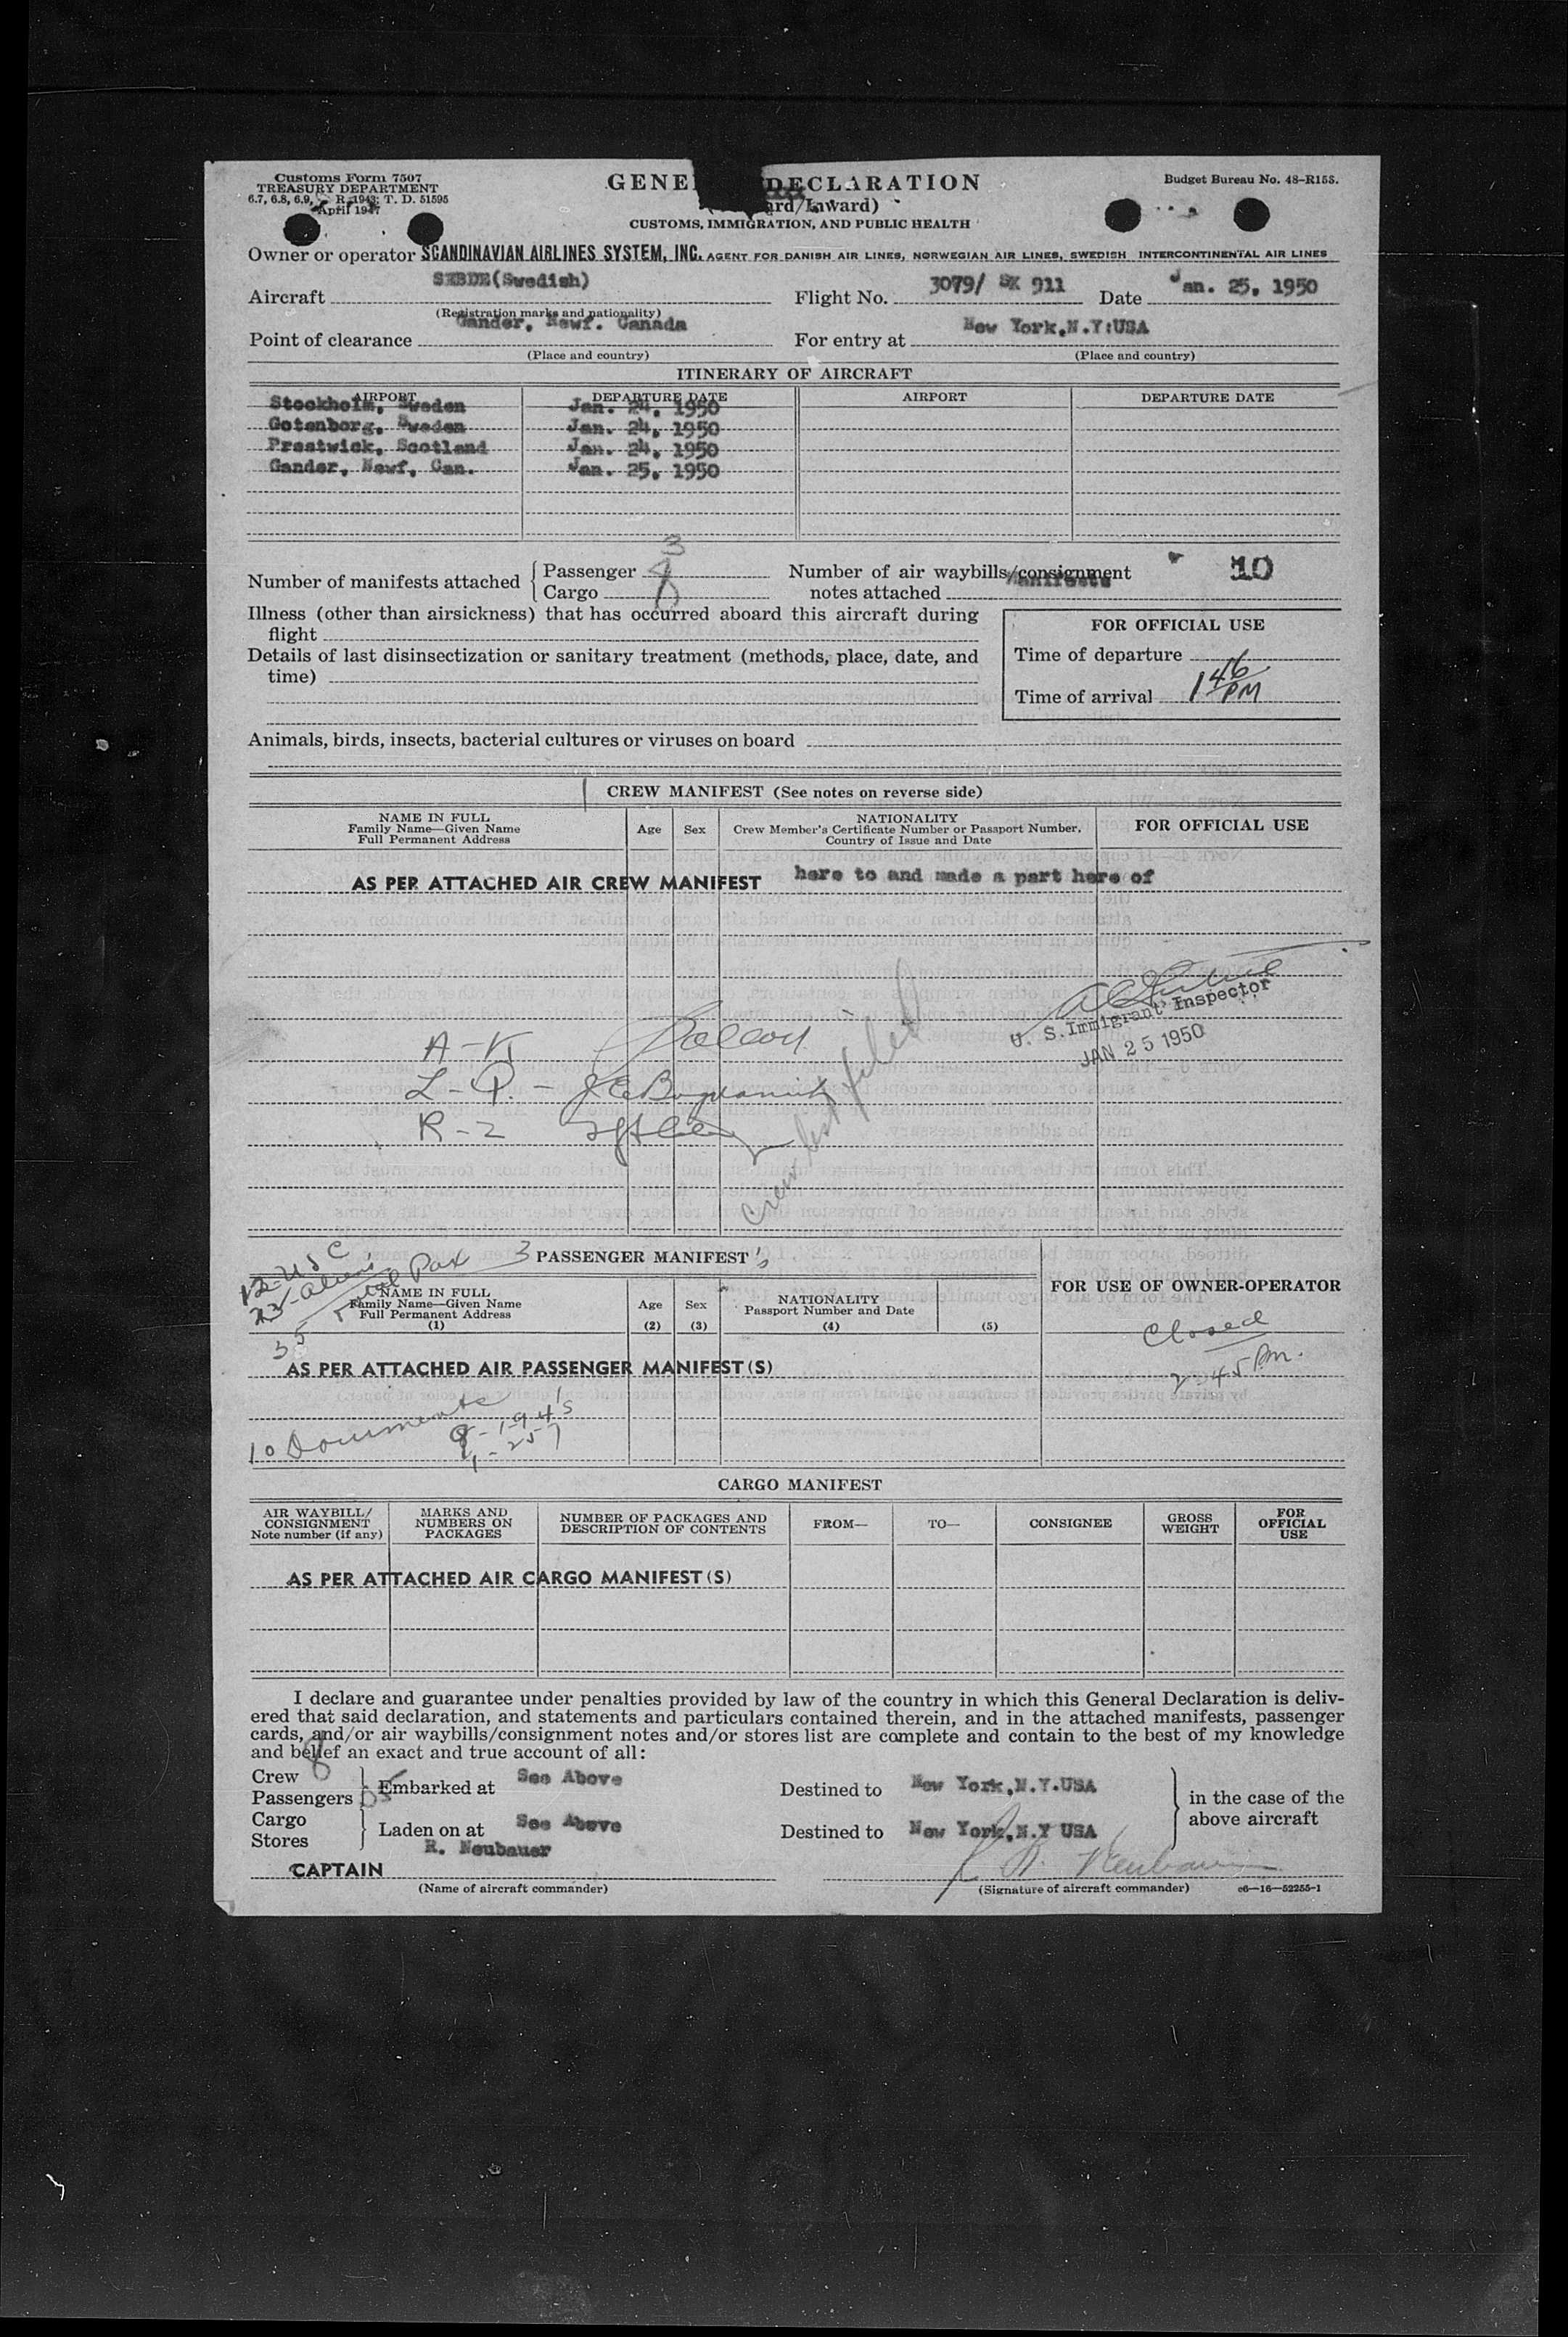 Customs Form 7507
TREASURY DEPARTMENT
6.7, 6.8, 6.9, R. 1943; T. D. 51595
April 1947
GENE DECLARATION
ard/Inward)
CUSTOMS, IMMIGRATION, AND PUBLIC HEALTH
Budget Bureau No. 48-R158.
Owner or operator SCANDINAVIAN AIRLINES SYSTEM, INC. AGENT FOR DANISH AIR LINES, NORWEGIAN AIR LINES, SWEDISH INTERCONTINENTAL AIR LINES
Aircraft SEBDE(Swedish) Flight No. 3079/ SK 911 Date Jan. 25, 1950
(Registration marks and nationality)
Point of clearance Gander, Newf. Canada For entry at New York,N.Y:USA
(Place and country) (Place and country)
ITINERARY OF AIRCRAFT
AIRPORT DEPARTURE DATE AIRPORT DEPARTURE DATE
Stockholm, Sweden Jan. 24, 1950
Gotenborg, Sweden Jan. 24, 1950
Prestwick, Scotland Jan. 24, 1950
Gander, Newf, Can. Jan. 25, 1950
Number of manifests attached Passenger 3
Cargo
Number of air waybills/consignment Manifests 10
notes attached
Illness (other than airsickness) that has occurred aboard this aircraft during
flight
Details of last disinsectization or sanitary treatment (methods, place, date, and
time)
FOR OFFICIAL USE
Time of departure
Time of arrival 1 46 PM
Animals, birds, insects, bacterial cultures or viruses on board
1 CREW MANIFEST (See notes on reverse side)
NAME IN FULL
Family Name—Given Name
Full Permanent Address
Age Sex
NATIONALITY
Crew Member's Certificate Number or Passport Number,
Country of Issue and Date
FOR OFFICIAL USE
AS PER ATTACHED AIR CREW MANIFEST here to and made a part here of
U. S. Immigrant Inspector
JAN 25 1950
A-K
L-Q-
R-Z
Crew list filed
12-USC
23-Aliens
35 Total Pax
3 PASSENGER MANIFEST's
NAME IN FULL
Family Name—Given Name
Full Permanent Address
(1)
Age
(2)
Sex
(3)
NATIONALITY
Passport Number and Date
(4) (5)
FOR USE OF OWNER-OPERATOR
Closed
2:45 Pm.
AS PER ATTACHED AIR PASSENGER MANIFEST(S)
10 Documents
9-I94's
1-257
CARGO MANIFEST
AIR WAYBILL/
CONSIGNMENT
Note number (if any)
MARKS AND
NUMBERS ON
PACKAGES
NUMBER OF PACKAGES AND
DESCRIPTION OF CONTENTS
FROM—
TO—
CONSIGNEE
GROSS
WEIGHT
FOR
OFFICIAL
USE
AS PER ATTACHED AIR CARGO MANIFEST(S)
I declare and guarantee under penalties provided by law of the country in which this General Declaration is deliv-
ered that said declaration, and statements and particulars contained therein, and in the attached manifests, passenger
cards, and/or air waybills/consignment notes and/or stores list are complete and contain to the best of my knowledge
and belief an exact and true account of all:
Crew 8
Passengers 35
Embarked at See Above Destined to New York,N.Y.USA
Cargo
Stores
Laden on at See Above Destined to New York,N.Y USA
in the case of the
above aircraft
R. Neubauer
CAPTAIN
(Name of aircraft commander) (Signature of aircraft commander) c6—16—52255-1